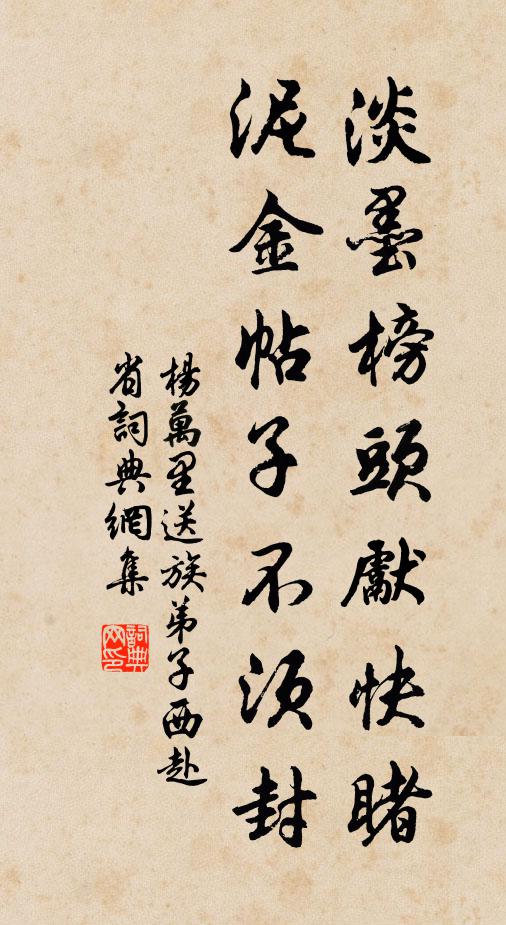 淡墨榜頭獻快睹
泥金帖子不須封
楊萬里送族弟子西赴
省詞典網集
詞典網印